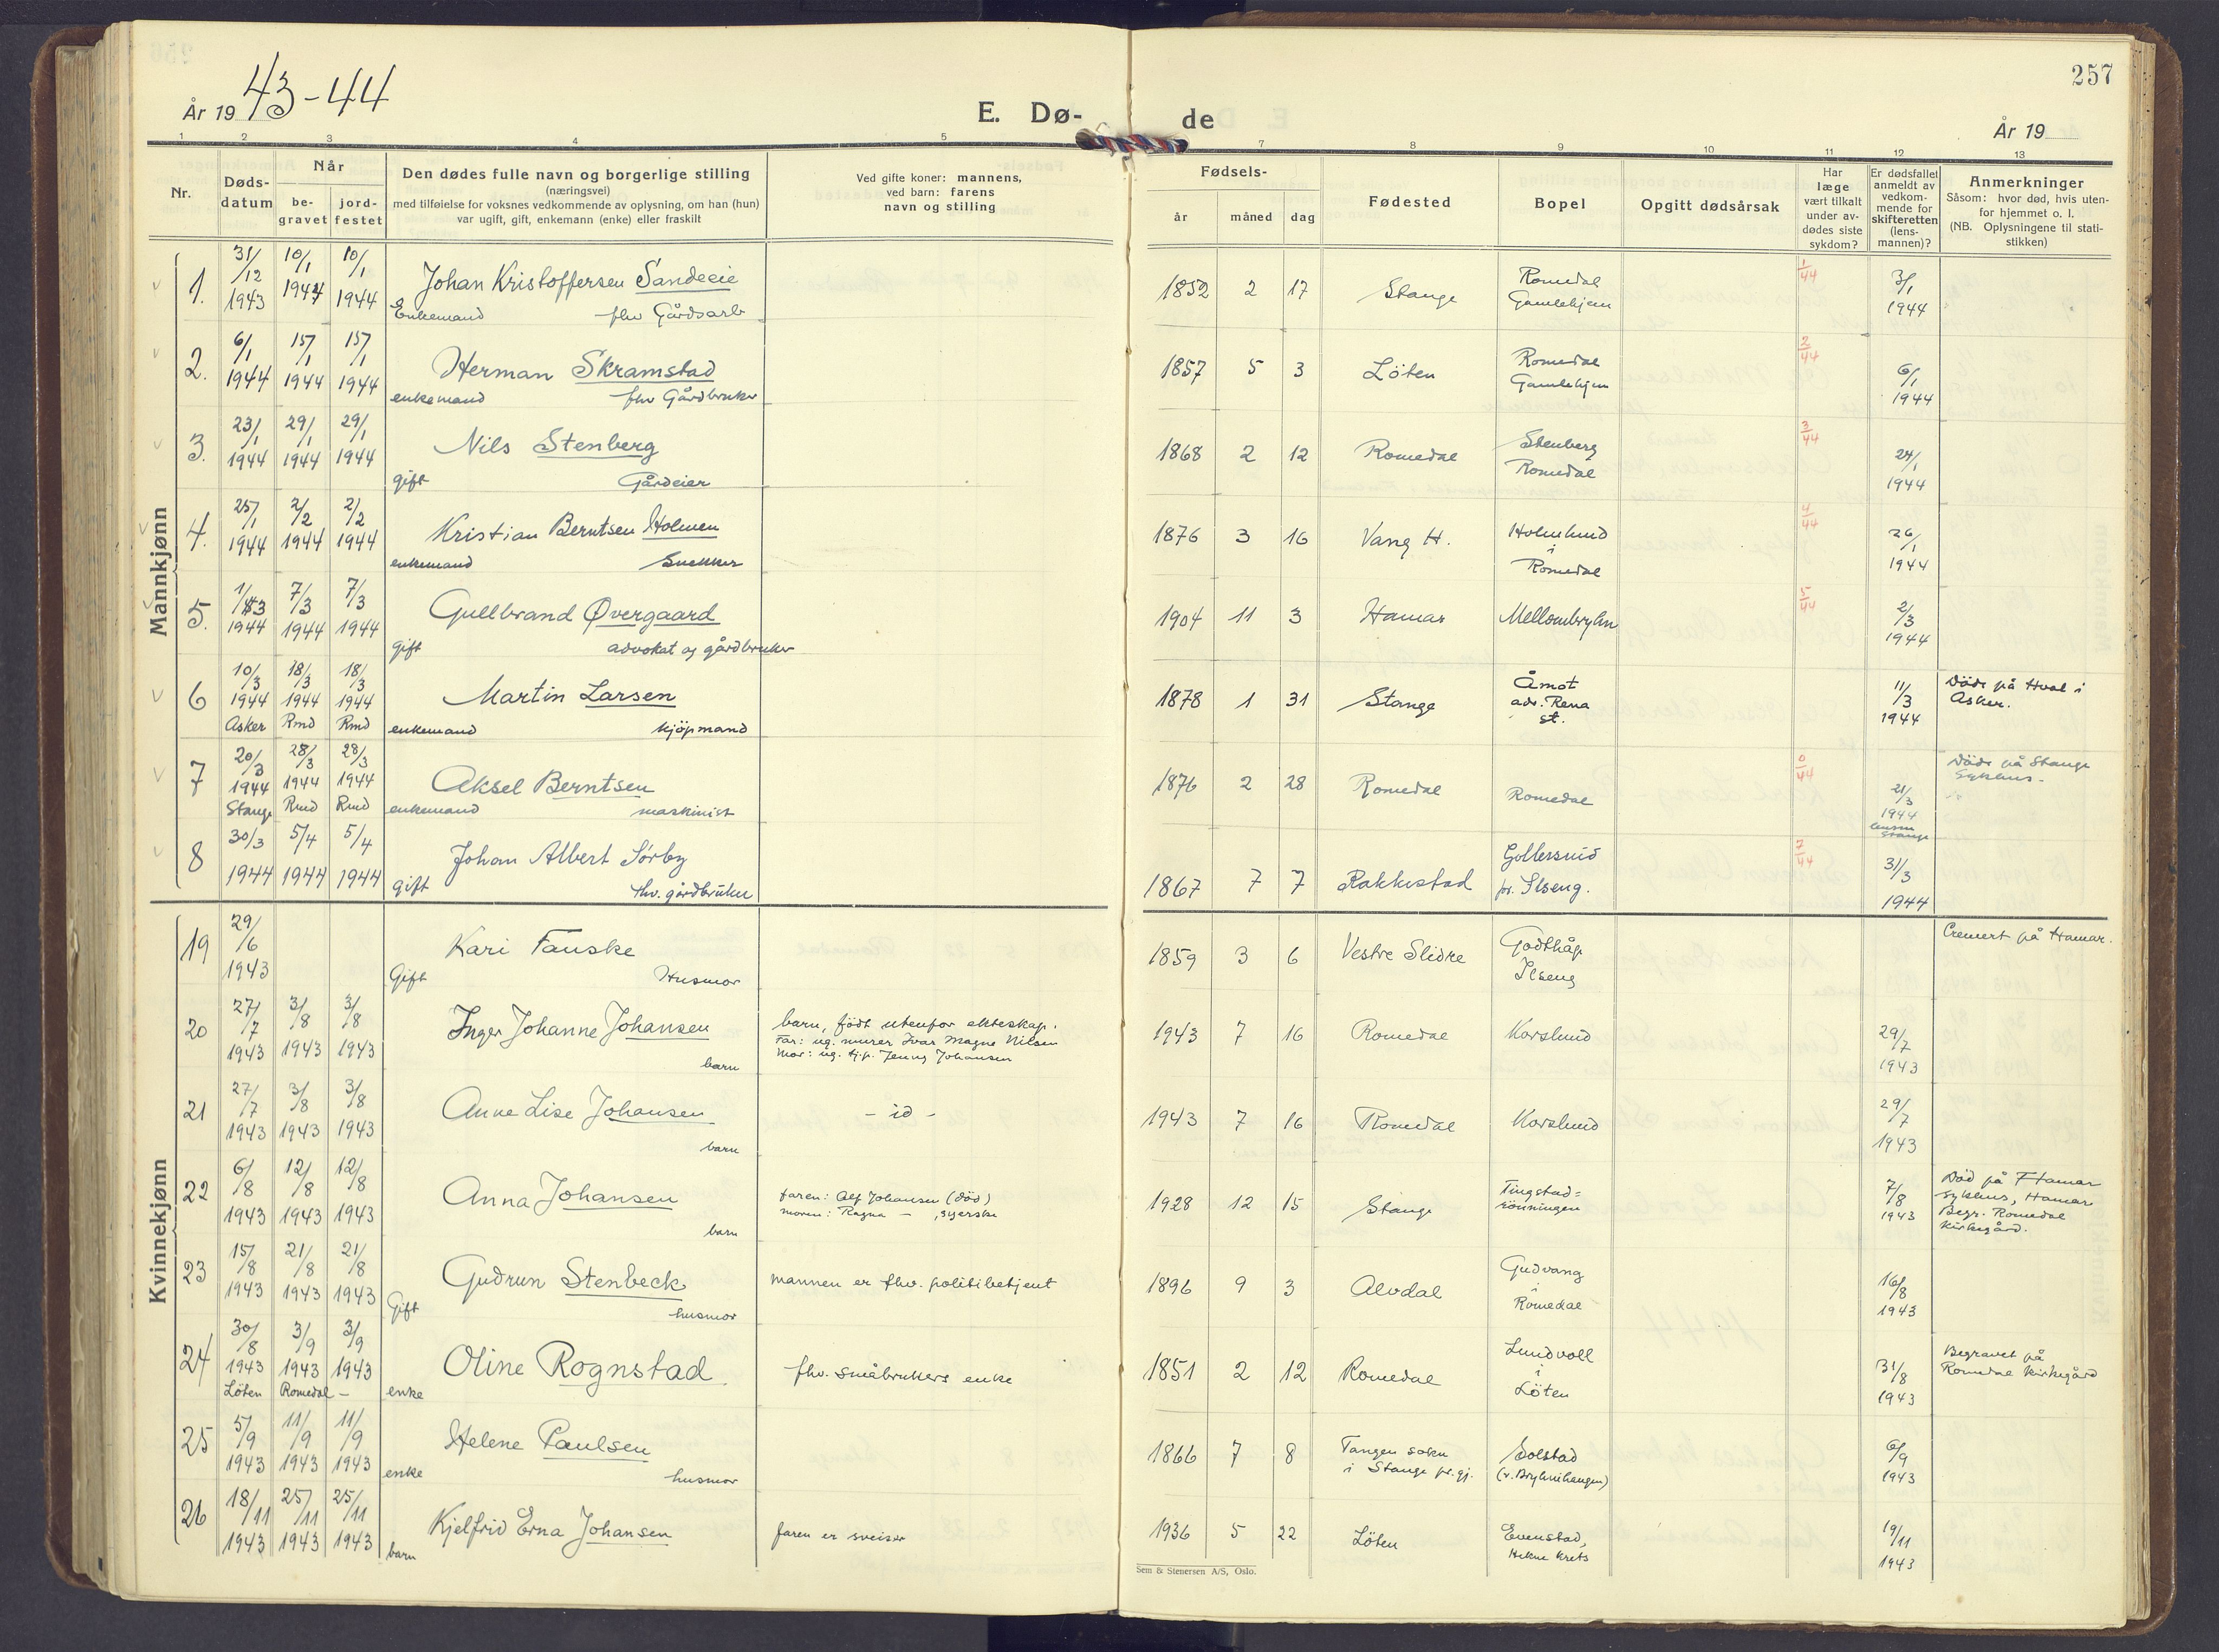 257
År 19 43-44
E. Dø-
de
År 19
1 2 3 4 5 7 8 9 10 11 12 13
Nr.
Døds-
datum
Når
be-
gravet
jord-
festet
Den dødes fulle navn og borgerlige stilling
(næringsvei)
med tilføielse for voksnes vedkommende av oplysning, om han (hun)
var ugift, gift, enkemann (enke) eller fraskilt
Ved gifte koner: mannens,
ved barn: farens
navn og stilling
Fødsels-
år måned dag
Fødested
Bopel
Opgitt dødsårsak
Har
læge
vært tilkalt
under av-
dødes siste
sykdom?
Er dødsfallet
anmeldt av
vedkom-
mende for
skifteretten
(lens-
mannen)?
Anmerkninger
Såsom: hvor død, hvis uten-
for hjemmet o. l.
(NB. Oplysningene til stati-
stikken)
Mannkjønn
1. 31/12 1943 10/1 1944 10/1 1944 Johan Kristoffersen Sandeeie
Enkemand fhv Gårdsarb
1852 2 17 Stange Romedal Gamlehjem 1/44 3/1 1944
2. 6/1 1944 15/1 1944 15/1 1944 Herman Skramstad
enkemand fhv Gårdbruker
1857 5 3 Löten Romedal Gamlehjem 2/44 6/1 1944
3. 23/1 1944 29/1 1944 29/1 1944 Nils Stenberg
gift Gårdeier
1868 2 12 Romedal Stenberg Romedal 3/44 24/1 1944
4. 25/1 1944 2/2 1944 2/2 1944 Kristian Berntsen Holmen
enkemand Snekker
1876 3 16 Vang H. Holmlund i Romedal 4/44 26/1 1944
5. 1/3 1944 7/3 1944 7/3 1944 Gullbrand Øvergaard
gift advokat og gårdbruker
1904 11 3 Hamar Mellombryhn 5/44 2/3 1944
6 10/3 1944 Asker 18/3 1944 Rmd 18/3 1944 Rmd Martin Larsen
enkemand kjöpmand
1878 1 31 Stange Åmot adr. Rena st. 11/3 1944 Döde på Hval i Asker.
7 20/3 1944 Stange 28/3 1944 Rmd 28/3 1944 Rmd Aksel Berntsen
enkemand maskinist
1876 2 28 Romedal Romedal 6/44 21/3 1944 Stange Döde på Stange Sykehus.
8 30/3 1944 5/4 1944 5/4 1944 Johan Albert Sörby
gift fhv. gårdbruker
1867 7 7 Rakkestad pr. Ilseng. 7/44 31/3 1944
Kvinnekjønn
19 29/6 1943 Kari Fauske
Gift Husmor
1859 3 6 Vestre Slidre Godthåp Ilseng Cremert på Hamar.
20 27/7 1943 3/8 1943 3/8 1943 Inger Johanne Johansen
barn
barn, födt utenfor ekteskap.
Far: ug. murer Ivar Magne Nilsen
Mor: ug. tj.p. Jenny Johansen
1943 7 16 Romedal Korslund 29/7 1943
21 27/7 1943 3/8 1943 3/8 1943 Anne Lise Johansen
barn
- id -
1943 7 16 Romedal Korslund 29/7 1943
22 6/8 1943 12/8 1943 12/8 1943 Anna Johansen
barn
faren: Alf Johansen (död)
moren: Ragna — , syerske
1928 12 15 Stange Tingstad= rönningen 7/8 1943 Död på Hamar sykehus, Hamar Begr. Romedal kirkegård.
23 15/8 1943 21/8 1943 21/8 1943 Gudrun Stenbeck
Gift husmor
mannen er fhv. politibetjent
1896 9 3 Alvdal Gudvang i Romedal 16/8 1943
24 30/8 1943 Löten 3/9 1943 Romedal 3/9 1943 — Oline Rognstad
enke
fhv. småbrukers enke
1851 2 12 Romedal Lundvoll i Löten 31/8 1943 Begravet på Romedal kirkegård
25 5/9 1943 11/9 1943 11/9 1943 Helene Paulsen
enke husmor
1866 7 8 Tangen sokn i Stange pr.gj. Solstad (v. Bryhnihaugen) 6/9 1943
26 18/11 1943 25/11 1943 25/11 1943 Kjelfrid Erna Johansen
barn
faren er sveiser
1936 5 22 Löten Evenstad, krets 19/11 1943
Sem & Stenersen A/S, Oslo.